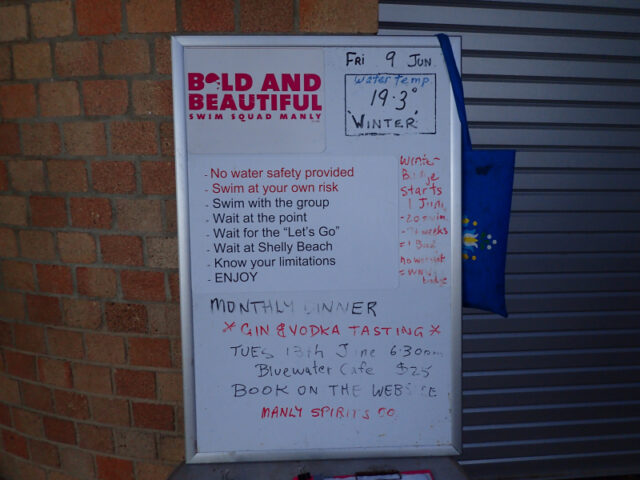 FRI 9 JUN
BOLD AND
BEAUTIFUL
SWIM SQUAD MANLY
Water temp.
19.3°
'WINTER'
- No water safety provided
- Swim at your own risk
- Swim with the group
- Wait at the point
- Wait for the “Let's Go”
- Wait at Shelly Beach
- Know your limitations
- ENJOY
Winter
Starts
1 June
MONTHLY DINNER
* GIN & VODKA TASTING *
TUES 13th June 6.30pm
Bluewater Cafe $25
BOOK ON THE WEBSITE
MANLY SPIRITS CO.